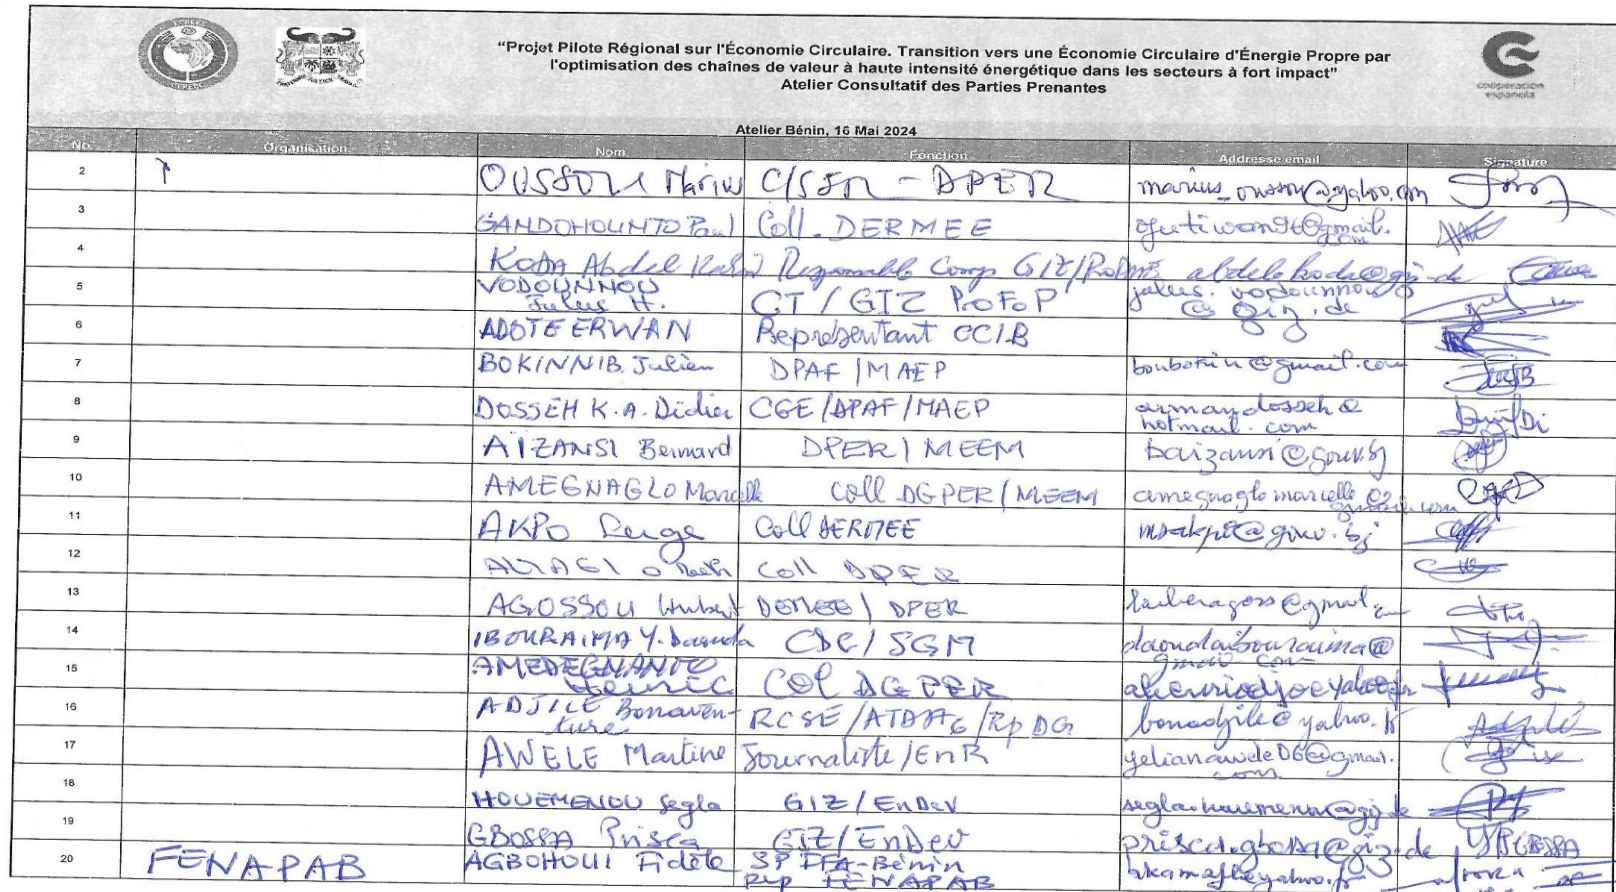 "Projet Pilote Régional sur l'Économie Circulaire. Transition vers une Économie Circulaire d'Énergie Propre par
l'optimisation des chaînes de valeur à haute intensité énergétique dans les secteurs à fort impact"
Atelier Consultatif des Parties Prenantes
cooperación
española
Atelier Bénin, 16 Mai 2024
No. Organisation Nom Fonction Addresse email Signature
2 OUSSOU Marius C/SER - DPER
3 GANDOHOUNTO Paul Coll. DERMEE
4 KODA Abdel Responsable Comp GIZ/
5 VODOUNNOU CT / GIZ ProFoP
Julus H. @ giz.de
6 ADOTE ERWAN Représentant CCIB
7 BOKINNIB. Julien DPAF / MAEP
8 DOSSEH K. A. Didier CGE/DPAF/MAEP armandosseh@
hotmail.com
9 AÏZANSI Bernard DPER / MEEM baizansi@gouv.bj
10 AMEGNAGLO Marcelle Coll DGPER / MEEM
11 AKPO Serge Coll DERMEE
12 Coll DPER
13 AGOSSOU Hubert DERMEE / DPER
14 IBOURAIMA Y. Daouda CDC / SGM daoudaibouraima@
gmail com
15 AMEDEGNANTO
Henric COL DGPER
16 ADJILE Bonaven-
ture RCSE /ATDA6 /Rp DG
17 AWELE Martine Journaliste/EnR yelianawele06@gmail.
com
18 HOUEMENOU Segla GIZ / EnDev
19 GBOSSA Prisca GIZ/EnDev prisca.gbossa@giz.de
20 FENAPAB AGBOHOUI Fidèle SP FFA-Bénin
Rep FENAPAB